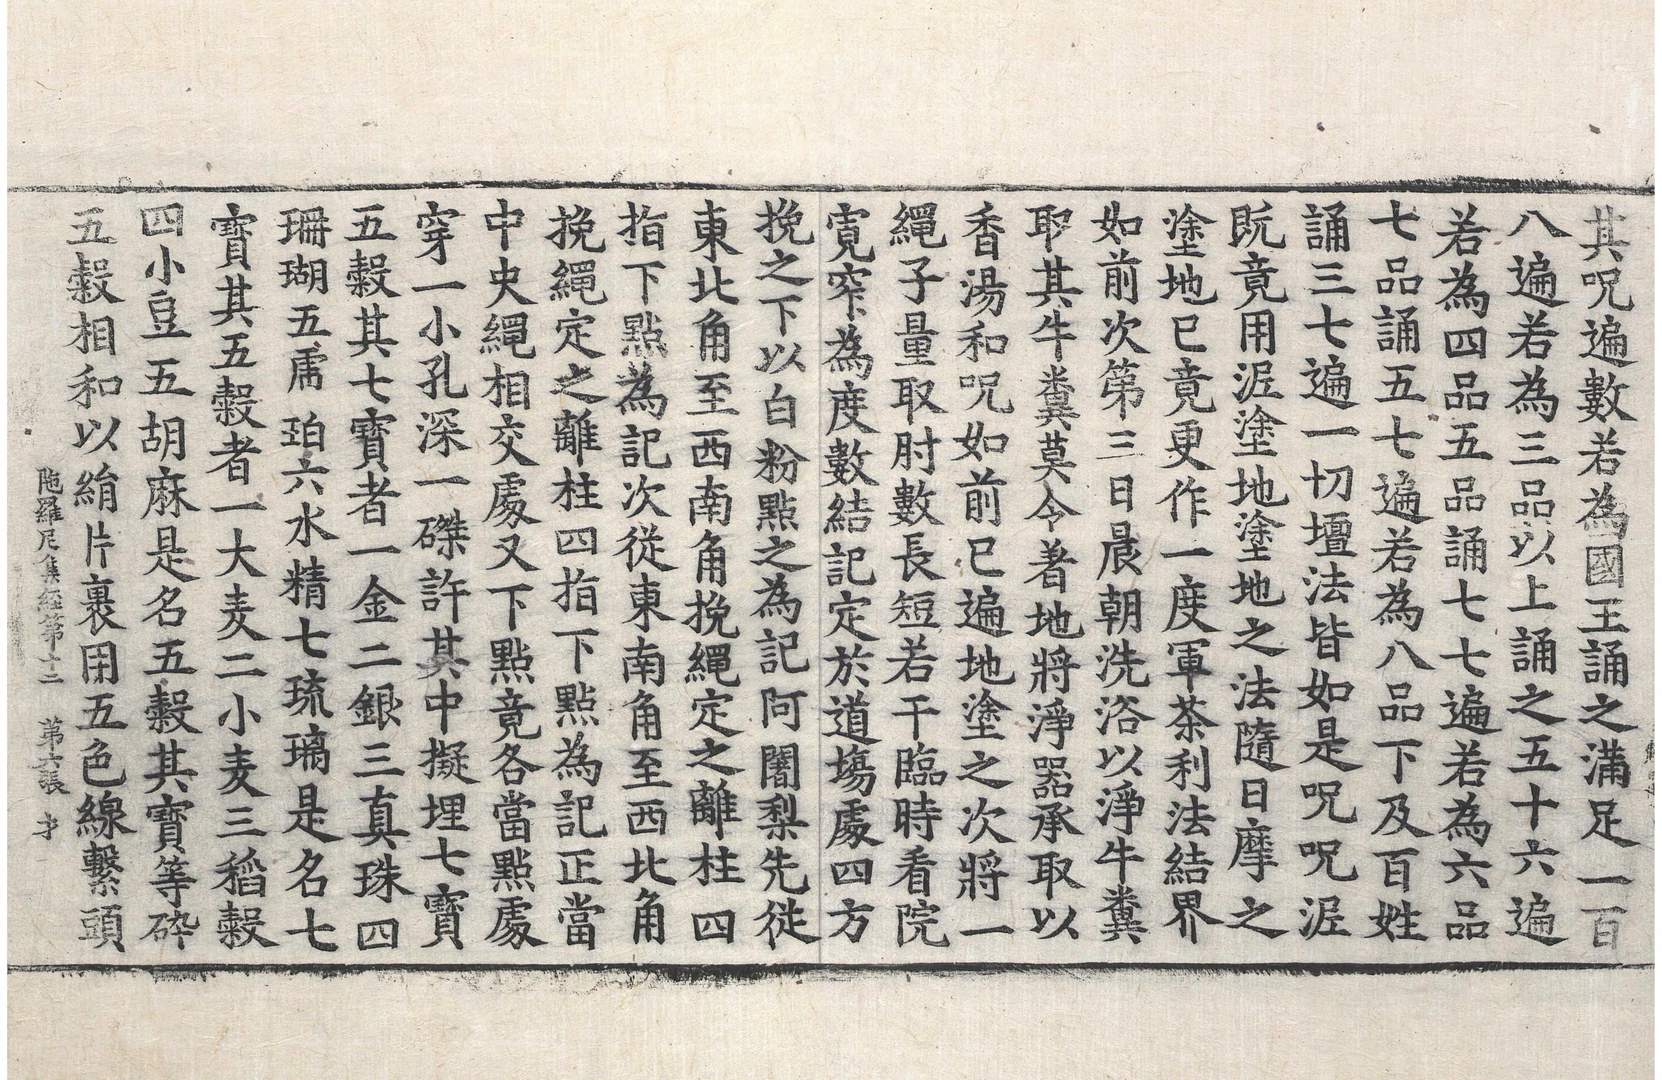 其呪遍數若為國王誦之滿足一百
八遍若為三品以上誦之五十六遍
若為四品五品誦七七遍若為六品
七品誦五七遍若為八品下及百姓
誦三七遍一切壇法皆如是呪呪泥
既竟用泥塗地塗地之法隨日摩之
塗地已竟更作一度軍荼利法結界
如前次第三日晨朝洗浴以淨牛糞
耶其牛糞莫令著地將淨器承取以
香湯和呪如前已遍地塗之次將一
繩子量取肘數長短若干臨時看院
寬窄為度數結記定於道場處四方
挽之下以白粉點之為記阿闍梨先從
東北角至西南角挽繩定之離柱四
指下點為記次從東南角至西北角
挽繩定之離柱四指下點為記正當
中央繩相交處又下點竟各當點處
穿一小孔深一磔許其中擬埋七寶
五穀其七寶者一金二銀三真珠四
珊瑚五虎珀六水精七琉璃是名七
寶其五穀者一大麦二小麦三稻穀
四小豆五胡麻是名五穀其寶等碎
五穀相和以絹片裹用五色線繫頭
陁羅尼集經第十二 第六張 才